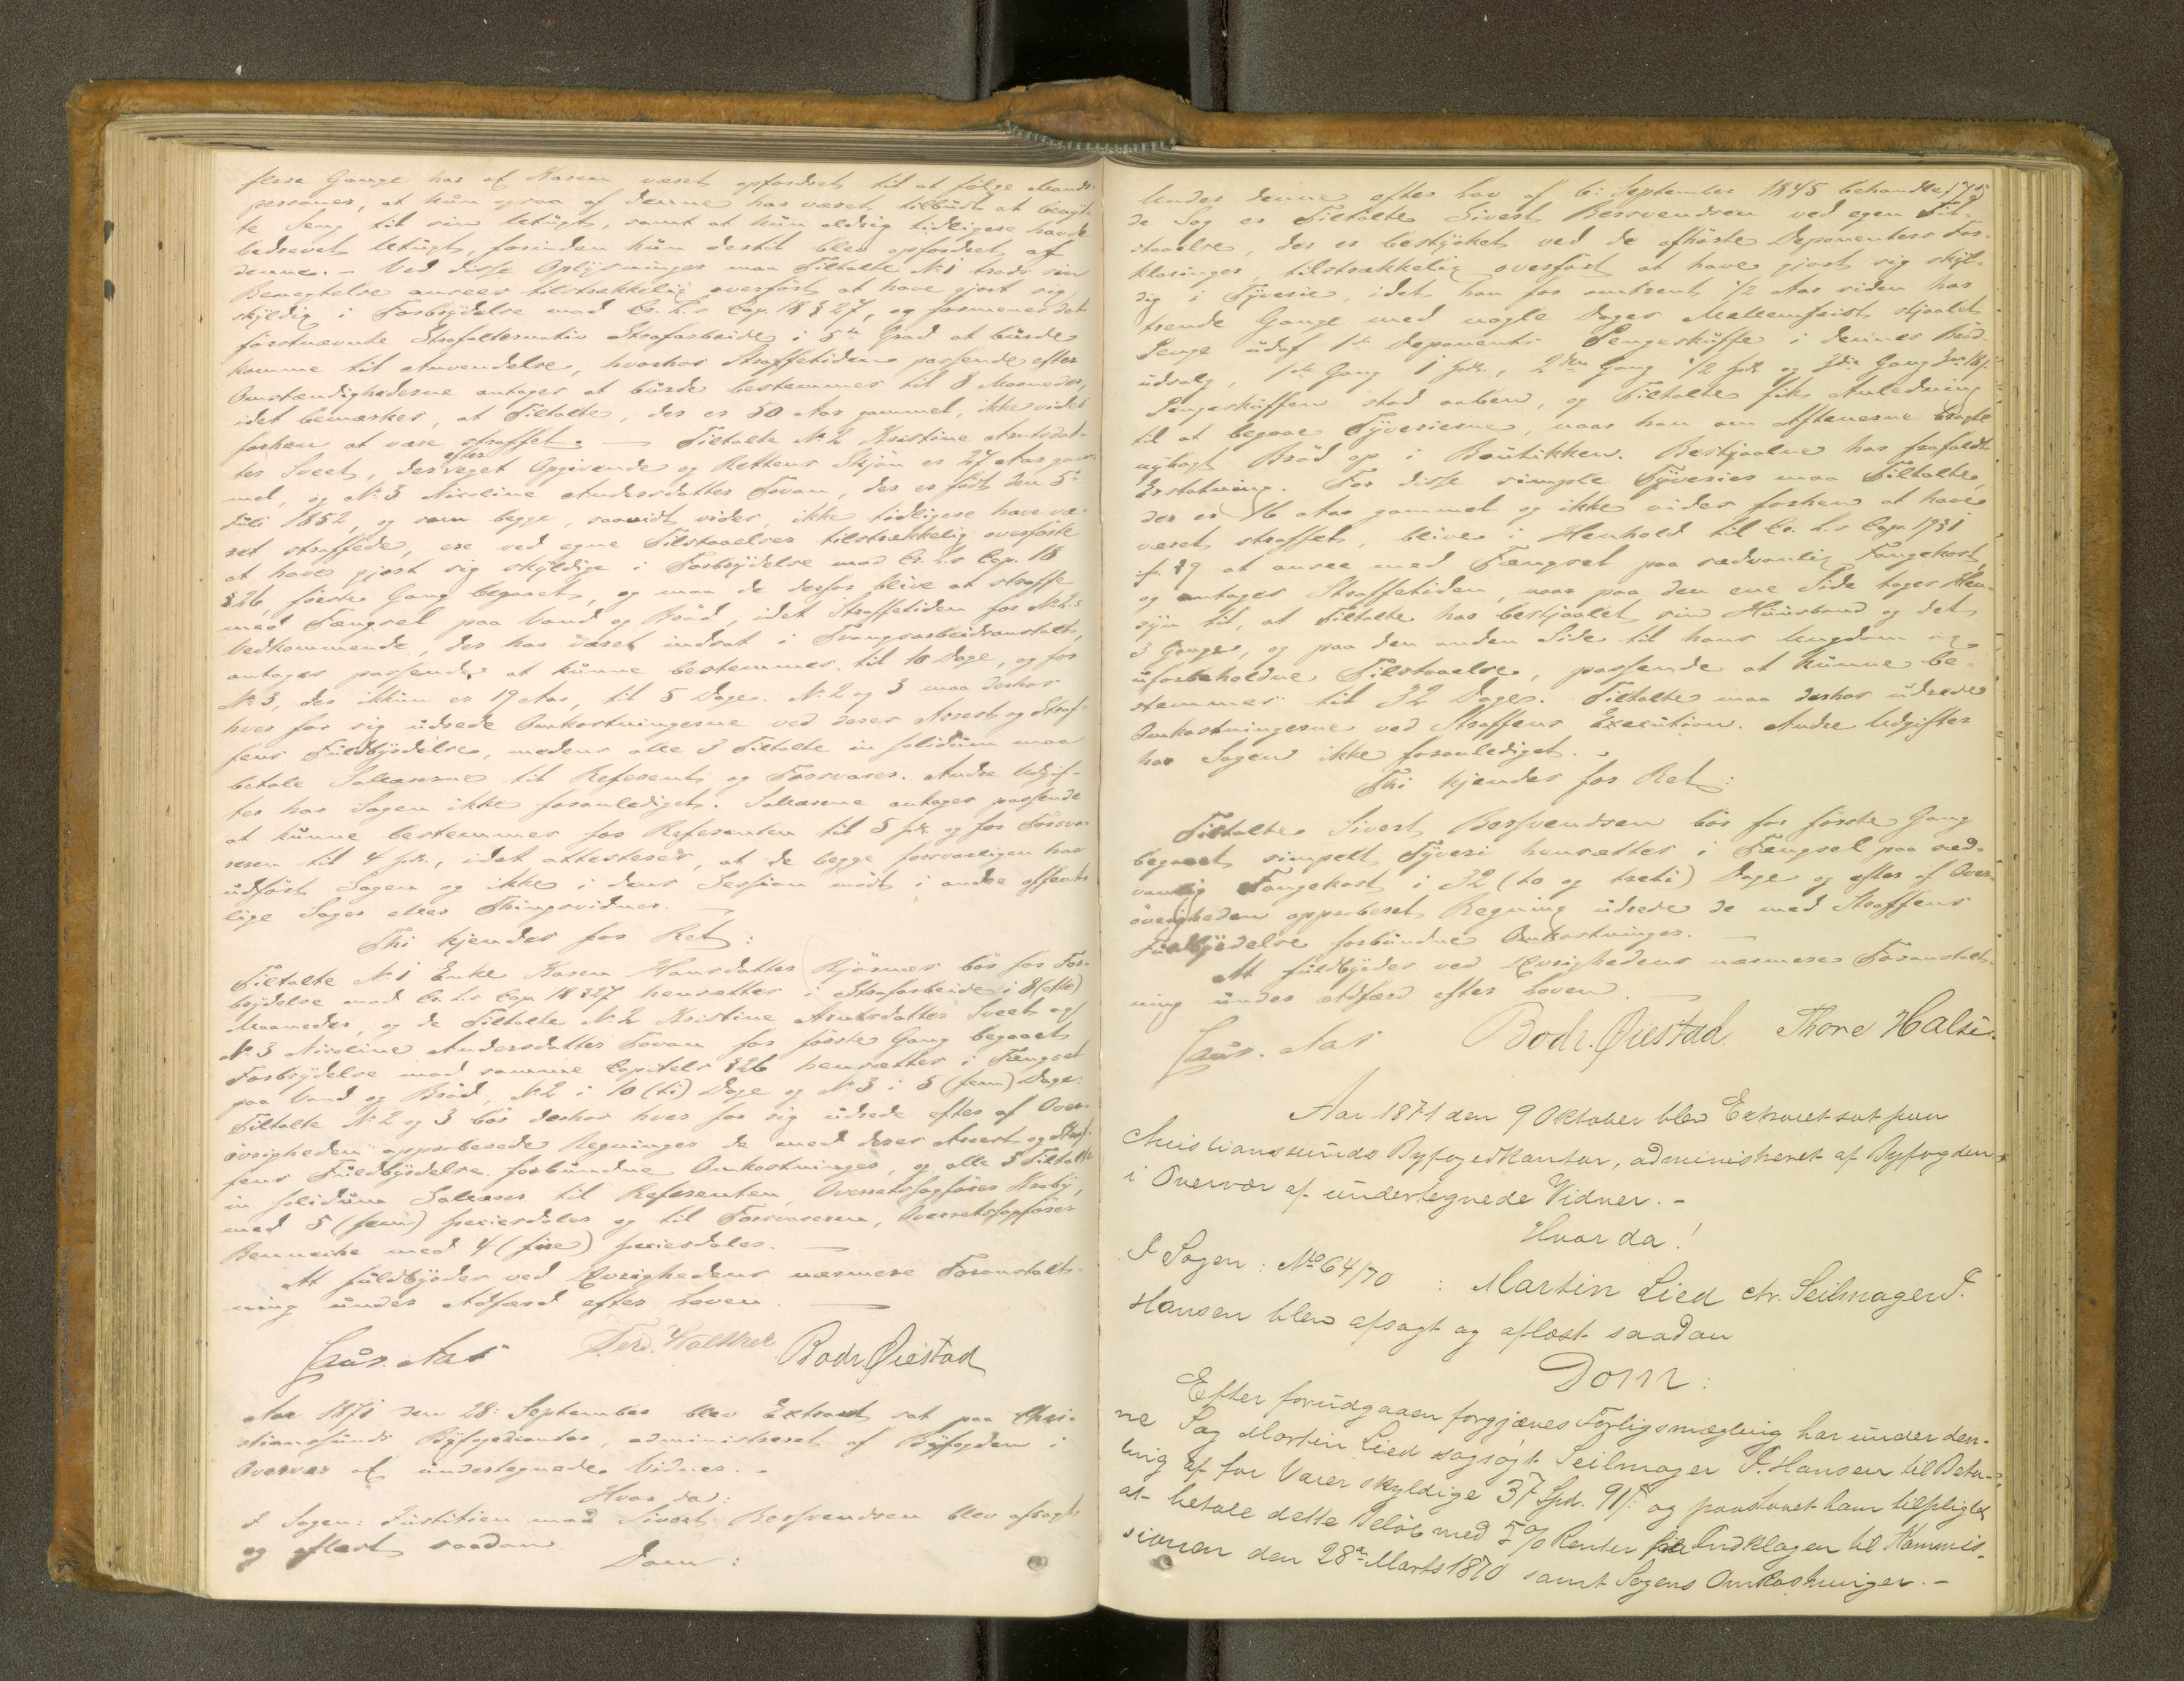 flere Gange har af Karen været opfordret til at følge Mands-
personer, at hün ogsaa af denne har været tilbüdt at benyt-
te Seng til sin Utügt, samt at hün aldrig tidligere havde
bedrevet Utügt, forinden hün dertil blev opfordret af
denne. – Ved disse Oplysninger maa Tiltalte No 1 trods sin
Benegtelse ansees tilstrækkelig overført at have gjort sig
skyldig i Forbrydelse mod Cr. L.s Cap. 18 § 27, og formenes det
førstnævnte Strafalternativ Strafarbeide i 5te Grad at bürde
komme til Anvendelse, hvorhos Straffetiden passende efter
Omstændighederne antages at bürde bestemmes til 8 Maaneder,
idet bemærkes, at Tiltalte, der er 50 Aar gammel, ikke vides
forhen at være straffet. – Tiltalte No 2 Kristine Arntsdat-
ter Sveet, der efter eget Opgivende og Rettens Skjøn er 27 Aar gam-
mel, og No 3 Nicoline Andersdatter Tovan, der er født den 5te
Juli 1852, og som begge, saavidt vides, ikke tidligere have væ-
ret straffede, ere ved egne Tilstaaelser tilstrækkelig overførte
at have gjort sig skyldige i Forbrydelse mod Cr. L.s Cap. 18
§ 26, første Gang begaaet, og maa de derfor blive at straffe
med Fængsel paa Vand og Brød, idet Straffetiden for No 2.s
Vedkommende, der har været indsat i Tvangsarbeidsanstalt,
antages passende at künne bestemmes til 10 Dage, og for
No 3, der ikkün er 19 Aar, til 5 Dage. No 2 og 3 maa derhos
hver for sig üdrede Omkostningerne ved deres Arrest og Straf-
fens Füldbyrdelse, medens alle 3 Tiltalte in solidüm maa
betale Salærerne til Referent og Forsvarer. Andre Udgif-
ter har Sagen ikke foranlediget. Salærerne antages passende
at künne bestemmes for Referenten til 5 spd. og for Forsva-
reren til 4 spd., idet attesteres, at de begge forsvarligen har
üdført Sagen og ikke i dens Session mødt i andre offent-
lige Sager eller Thingsvidner. –
Thi kjendes for Ret:
Tiltalte No 1 Enke Karen Hansdatter Bjørnær bør for For-
brydelse mod Cr. L.s Cap. 18 § 27 hensættes i Strafarbeide i 8 (otte)
Maaneder, og de Tiltalte No 2 Kristine Arntsdatter Sveet og
No 3 Nicoline Andersdatter Tovan for første Gang begaaet
Forbrydelse mod samme Capitels § 26 hensættes i Fængsel
paa Vand og Brød, No 2 i 10 (ti) Dage og No 3 i 5 (fem) Dage.
Tiltalte No 2 og 3 bør derhos hver for sig üdrede efter af Over-
øvrigheden approberede Regninger de med deres Arrest og Straf-
fens Füldbyrdelse forbündne Omkostninger, og alle 3 Tiltalte
in solidüm Salærer til Referenten, Overretssagfører
med 5 (fem) speciesdaler og til Forsvareren, Overretssagfører
Benneche med 4 (fire) speciesdaler. –
At füldbyrdes ved Øvrighedens nærmere Foranstalt-
ning ünder Adfærd efter Loven. –
Aas Ferd. Walther Bodr. Øiestad
Aar 1871 den 28: September blev Extraret sat paa Chri-
stianssünds Byfogedcontor, administreret af Byfogden i
Overvær af ündertegnede Vidner. –
Hvor da:
I Sagen: Justitien mod Sivert Bersvendsen blev afsagt
og aflæst saadan
Dom:
Under denne efter Lov af 6: September 1845 behandle-
de Sag er Tiltalte Sivert Bersvendsen ved egen Til-
staaelse, der er bestyrket ved de afhørte Deponenters For-
klaringer tilstrækkelig overført at have gjort sig skyl-
dig i Tyverie, idet han for omtrent 1/2 Aar siden har
trende Gange med nogle Dages Mellemfrist stjaalet
Penge üdaf 1ste Deponents Pengesküffe i dennes Brød-
üdsalg, 1ste Gang 1 spd., 2den Gang 1/2 spd. og 3die Gang
Pengesküffen stod aaben, og Tiltalte fik Anledning
til at begaae Tyverierne, naar han om Aftenerne bragte
nybagt Brød op i Boütikken. Bestjaalne har frafaldt
Erstatning. For disse simple Tyverier maa Tiltalte,
der er 16 Aar gammel og ikke vides forhen at have
været straffet, blive i Henhold til Cr. L.s Cap. 19 § 1
cf. § 9 at ansee med Fængsel paa sædvanlig Fangekost,
og antages Straffetiden, naar paa den ene Side tages Hen-
syn til, at Tiltalte har bestjaalet sin Hüüsbond og det
3 Gange, og paa den anden Side til hans Ungdom og
üforbeholdne Tilstaaelse, passende at künne be-
stemmes til 32 Dage. Tiltalte maa derhos üdrede
Omkostningerne ved Straffens Execütion. Andre Udgifter
har Sagen ikke foranlediget. –
Thi kjendes for Ret:
Tiltalte Sivert Bersvendsen bør for første Gang
begaaet simpelt Tyveri hensættes i Fængsel paa sæd-
vanlig Fangekost i 32 (to og treti) Dage og efter af Over-
øvrigheden approberet Regning üdrede de med Straffens
Füldbyrdelse forbündne Omkostninger. –
At füldbyrdes ved Øvrighedens nærmere Foranstalt-
ning ünder Adfærd efter Loven. –
Aas Bodr. Øiestad. Thore Halse.
Aar 1871 den 9 Oktober blev Extraret sat paa
Christianssunds Byfogedkontor, administreret af Byfogden
i Overvær af undertegnede Vidner. –
Hvor da!
I Sagen: No 64/70 : Martin Lied ctr. Seilmager J.
Hansen blev afsagt og aflæst saadan
Dom:
Efter forudgaaen forgjæves Forligsmægling har under den-
ne Sag Martin Lied sagsøgt Seilmager J. Hansen til Beta-
ling af for Varer skyldige 37 Spd. 91 s: og paastaaet ham tilpligtet
at betale dette Beløb med 5 % Renter fra Indklagen til Kommis-
sionen den 28de Marts 1870 samt Sagens Omkostninger. –